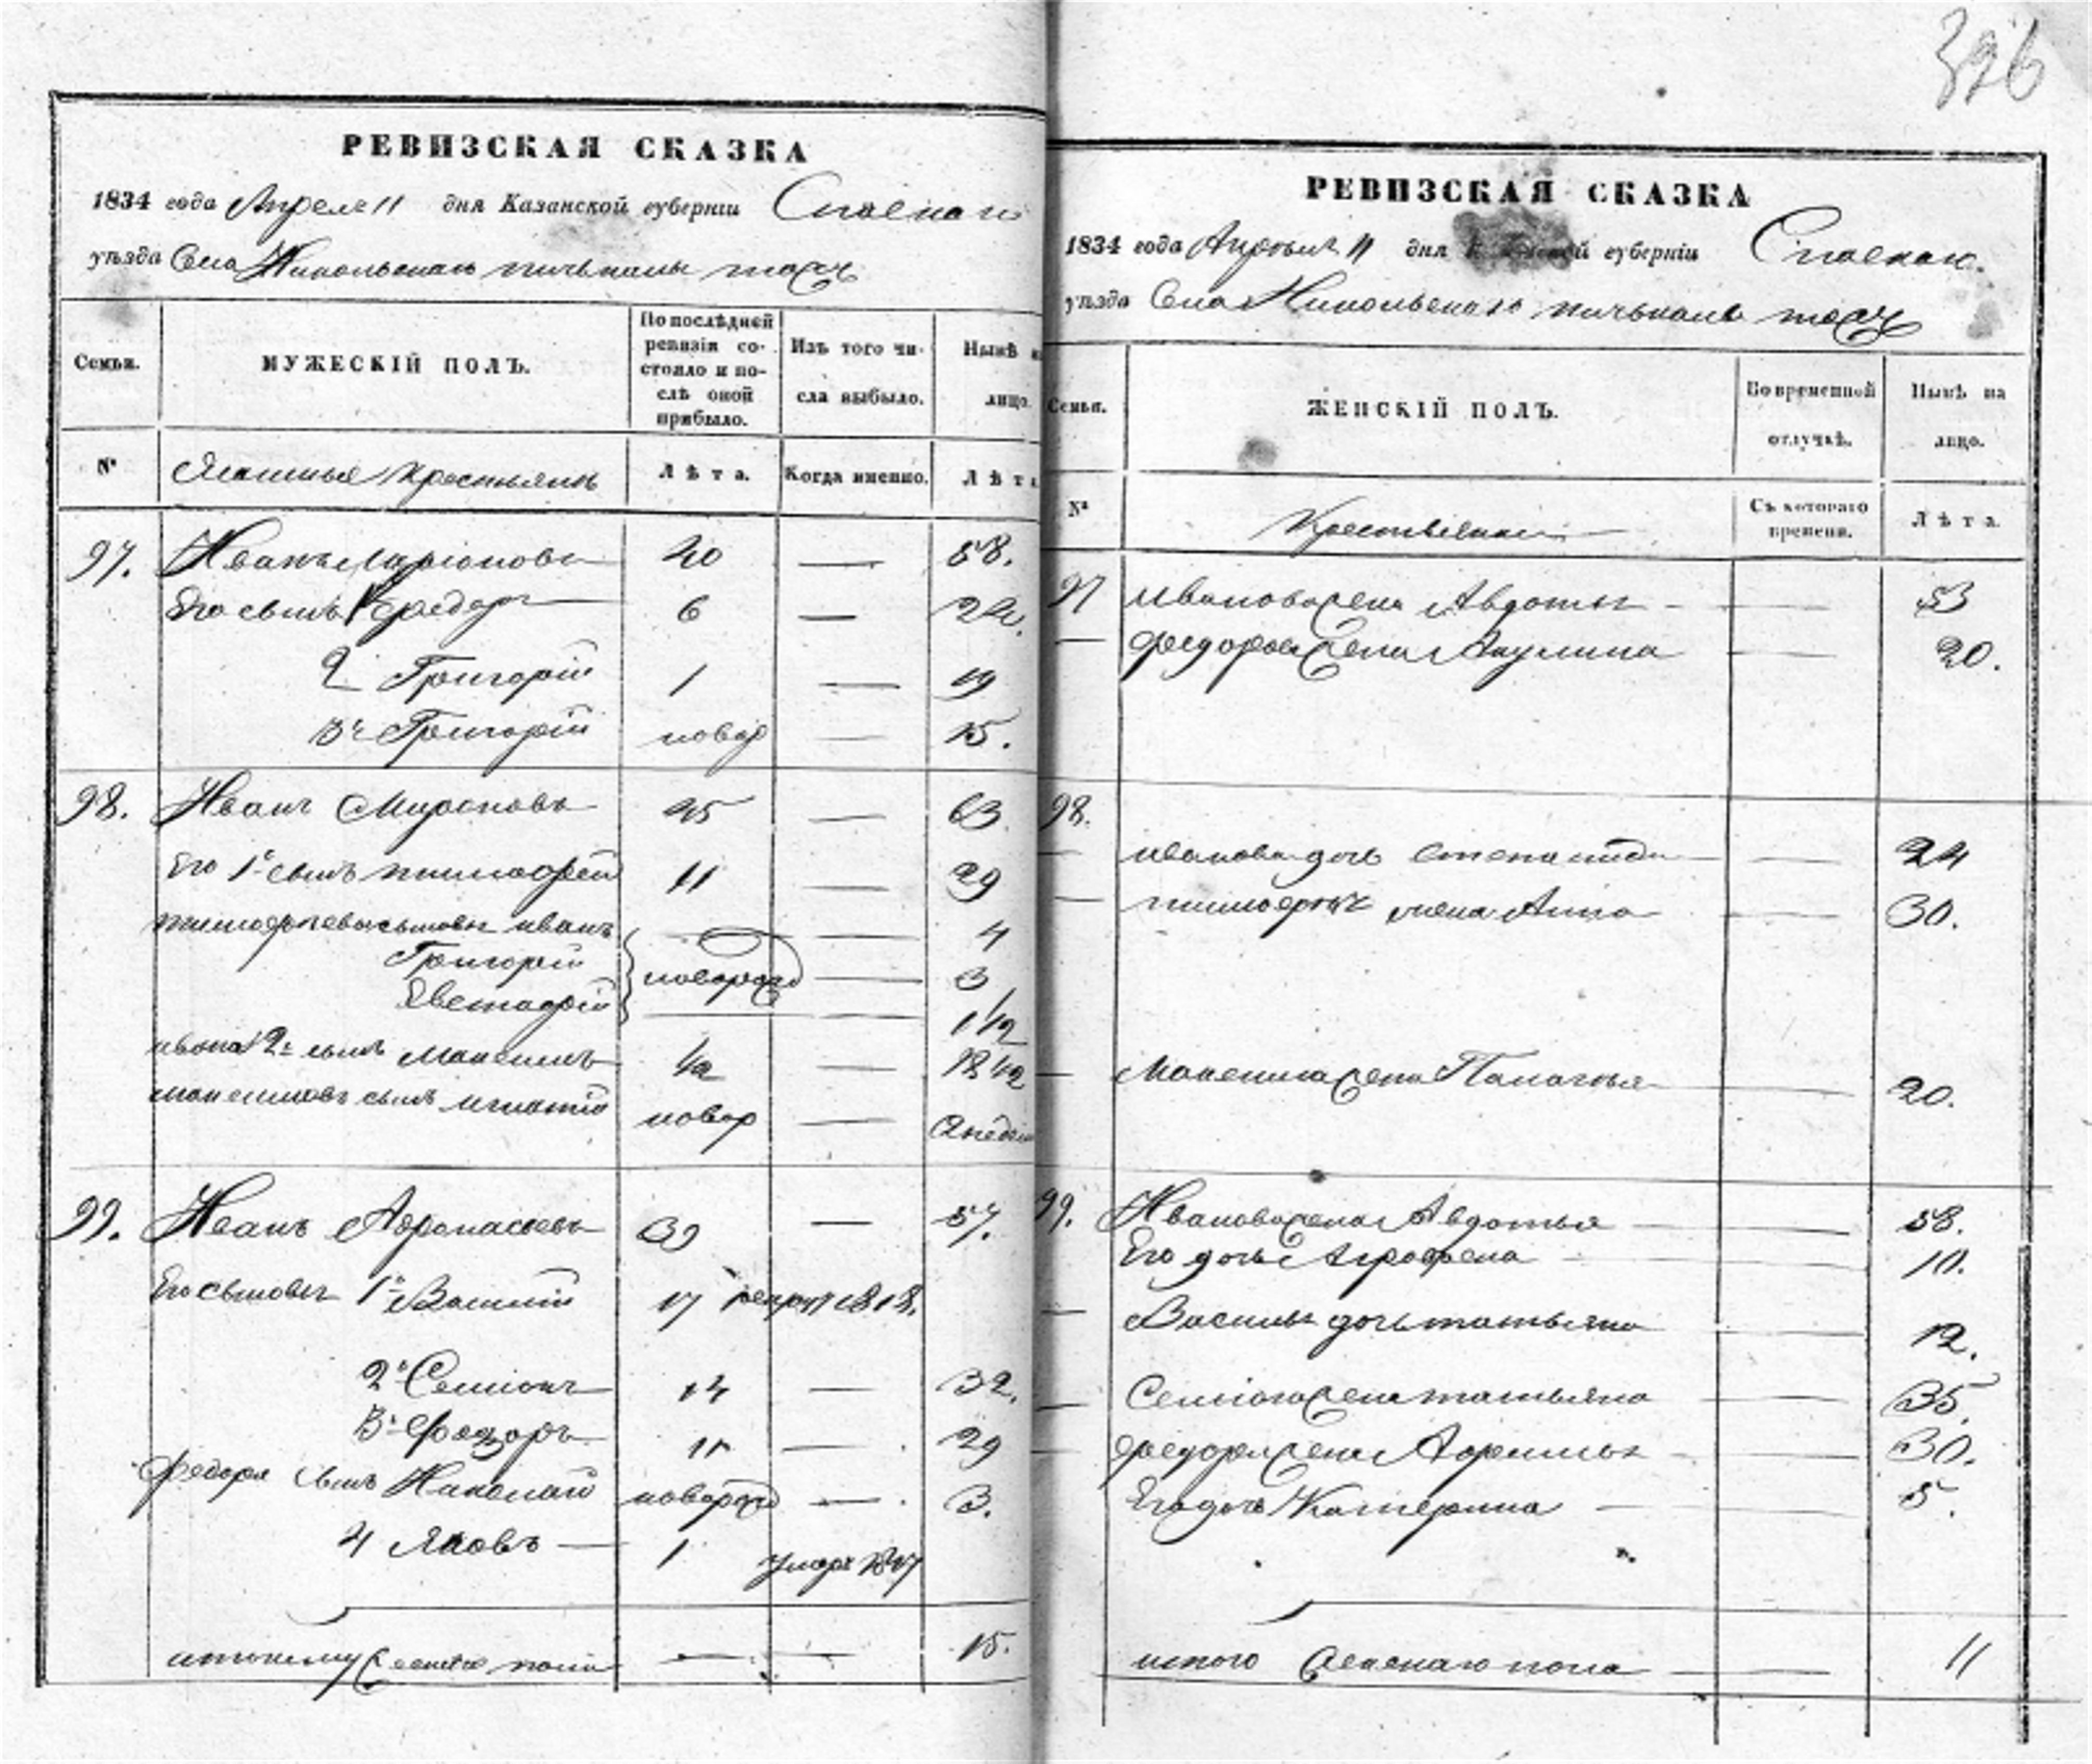 326
РЕВИЗСКАЯ СКАЗКА
1834 года Апреля 11 дня Казанской губерніи Спаскаго
уѣзда Села Никольскаго
Семьи. МУЖЕСКІЙ ПОЛЪ. По послѣдней ревизіи состояло и послѣ оной прибыло. Изъ того числа выбыло. Нынѣ на лицо.
№ Ясашныя крестьянъ Лѣта. Когда именно. Лѣта
97. Иванъ Ларіоновъ 40 — 58.
Его сынъ 1 Федоръ 6 — 24.
2 Григорій 1 — 19
3й Григорій новор — 15.
98. Иванъ Мироновъ 45 — 63
Его 1й сынъ тимофей 11 — 29
тимофеева сыновья иванъ — 4
Григорій новорожд — 3
Евстафій — 1 1/2
ивана 2й сынъ Максимъ 1/2 — 18 1/2
максимовъ сынъ игнатій новор —
99. Иванъ Афонасьевъ 39 — 57.
Его сыновья 1й Василій 17 рекрут 1818.
2й Семіонъ 14 — 32.
3й Федоръ 11 — 29
Федора сынъ Николай новорожд — 3.
4 Яковъ — 1 умеръ 1817
итого мужеска пола — — 15.
РЕВИЗСКАЯ СКАЗКА
1834 года Апрѣля 11 дня Казанской губерніи Спаскаго
уѣзда Села Никольскаго
Семьи. ЖЕНСКІЙ ПОЛЪ. Во временной отлучкѣ. Нынѣ на лицо.
№ Крестьянки Съ котораго времени. Лѣта
97 Иванова жена Авдотья — — 53
— Федорова жена Акулина — 20.
98.
— иванова дочь степанида — — 24
— тимофея жена Анна — — 30.
— Максима жена Палагья — — 20.
99. Иванова жена Авдотья — — 58.
Его дочь Аграфена — — 10.
— Василья дочь татьяна — — 12.
— Семіона жена татьяна — — 35.
— Федора жена Афимья — — 30.
Его дочь Катерина — — 5.
итого женскаго пола — — 11